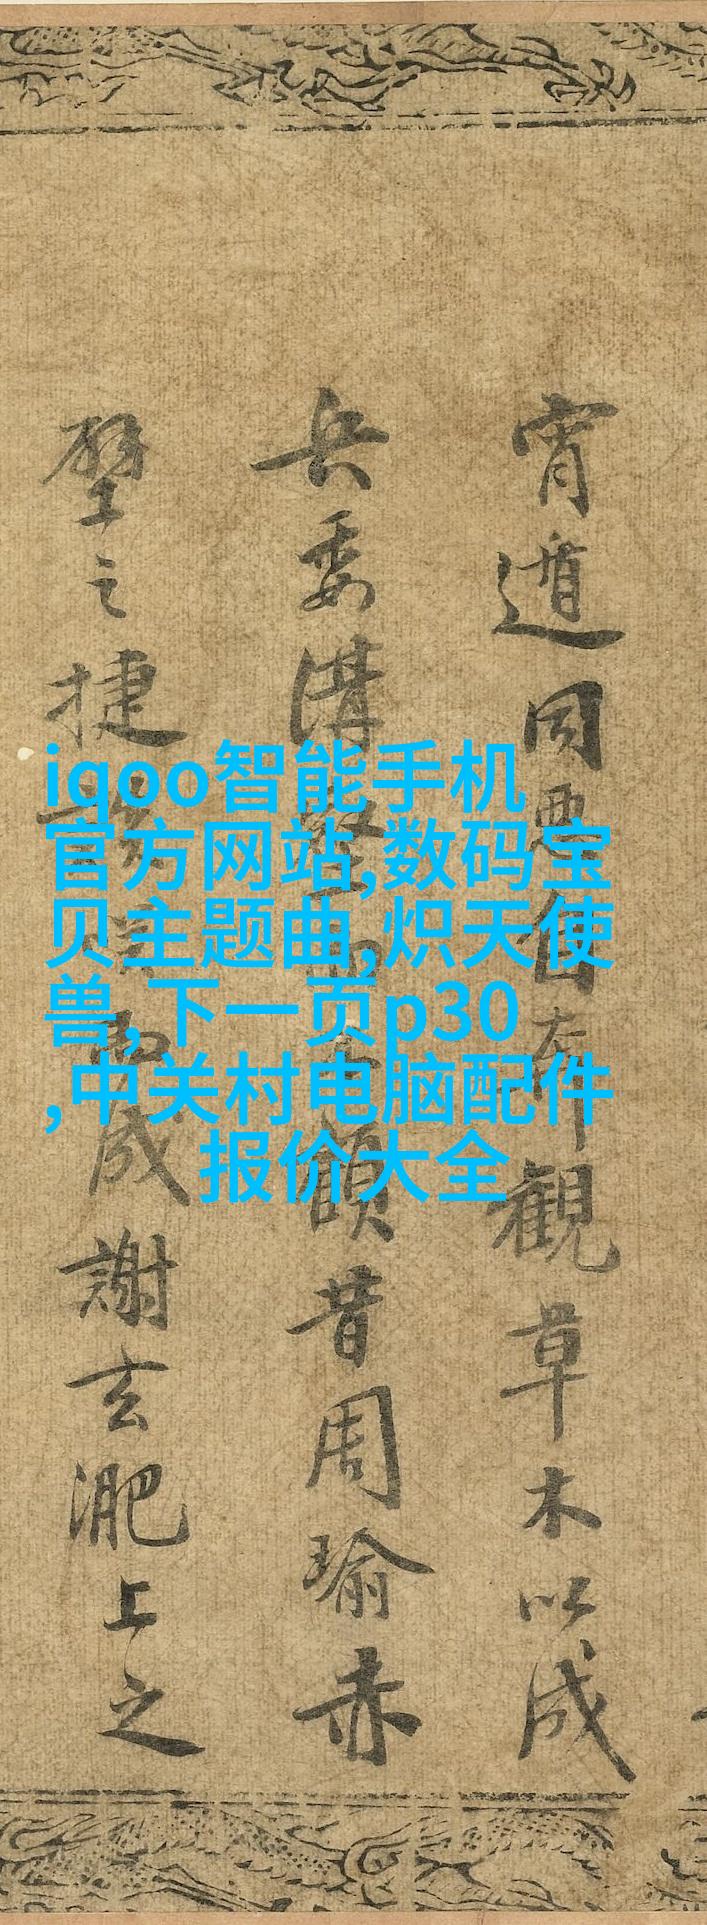 宵遁同惡奔觀草木以成
兵委溝壑額昔周瑜赤
壁之捷談笑而成謝玄淝上之
iqoo智能手机
官方网站,数码宝
贝主题曲,炽天使
兽,下一页p30
,中关村电脑配件
报价大全